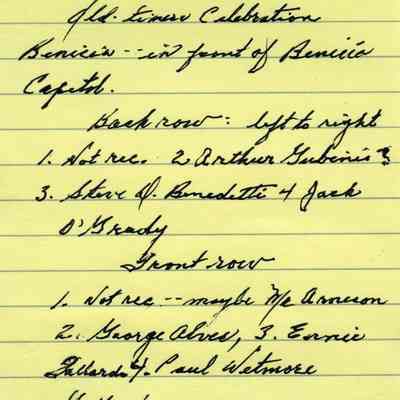 Old-timers Celebration
Benicia -- in front of Benicia
Capitol.
Back row: left to right
1. Not rec. 2 Arthur Gubinis ?
3. Steve D. Benedetti 4 Jack
O'Grady
Front row
1. Not rec -- maybe Mr Arneson
2. George Alves, 3. Ernie
Gallardo 4. Paul Wetmore